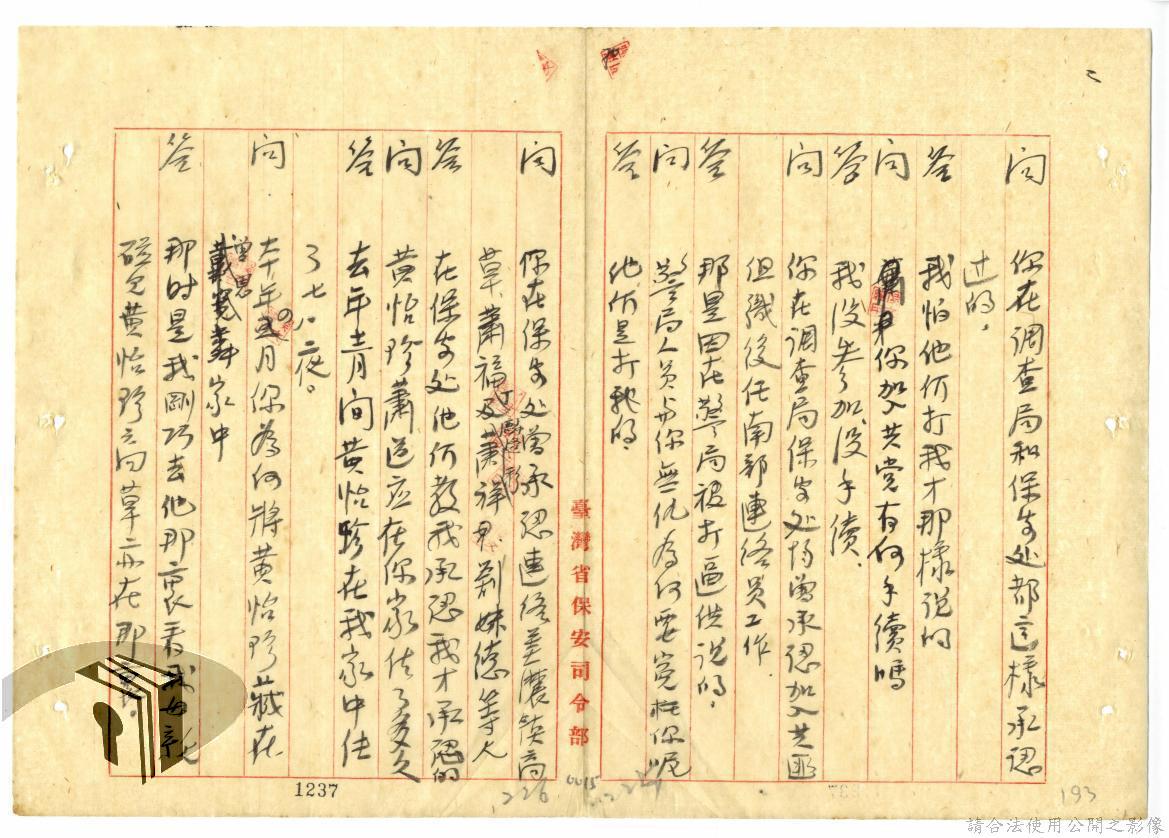 二
問 你在調查局和保安处都這樣承認
过的。
答 我怕他们打我才那樣說的
問 你加入共党有何手續嗎
答 我没参加没手續、
問 你在調查局保安处均曾承認加入共匪
但職後任南部連絡員工作
答 那是因在警局被打逼供説的。
問 警局人員与你無仇為何要冤枉你呢
答 他们是打我的、
問 你在保安处曾承認連絡美濃鎮高
草、蕭福及蕭祥 荊妹德等人
答 在保安处他们教我承認我才承認的
問 黄怡珍蕭道应在你家住了多久
答 去年 青間黄怡珍在我家中住
了七八夜。
問 本年 月你為何將黄怡珍藏在
曾思 家中
答 那时是我剛巧去他那裏看我母親
碰見黄怡珍 草 在那裏。
臺灣省保安司令部
1237
226
0015
193
請合法使用公開之影像